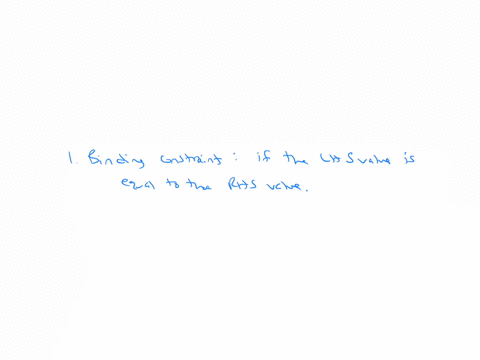 1. Binding constraint: if the LHS value is
equal to the RHS value.